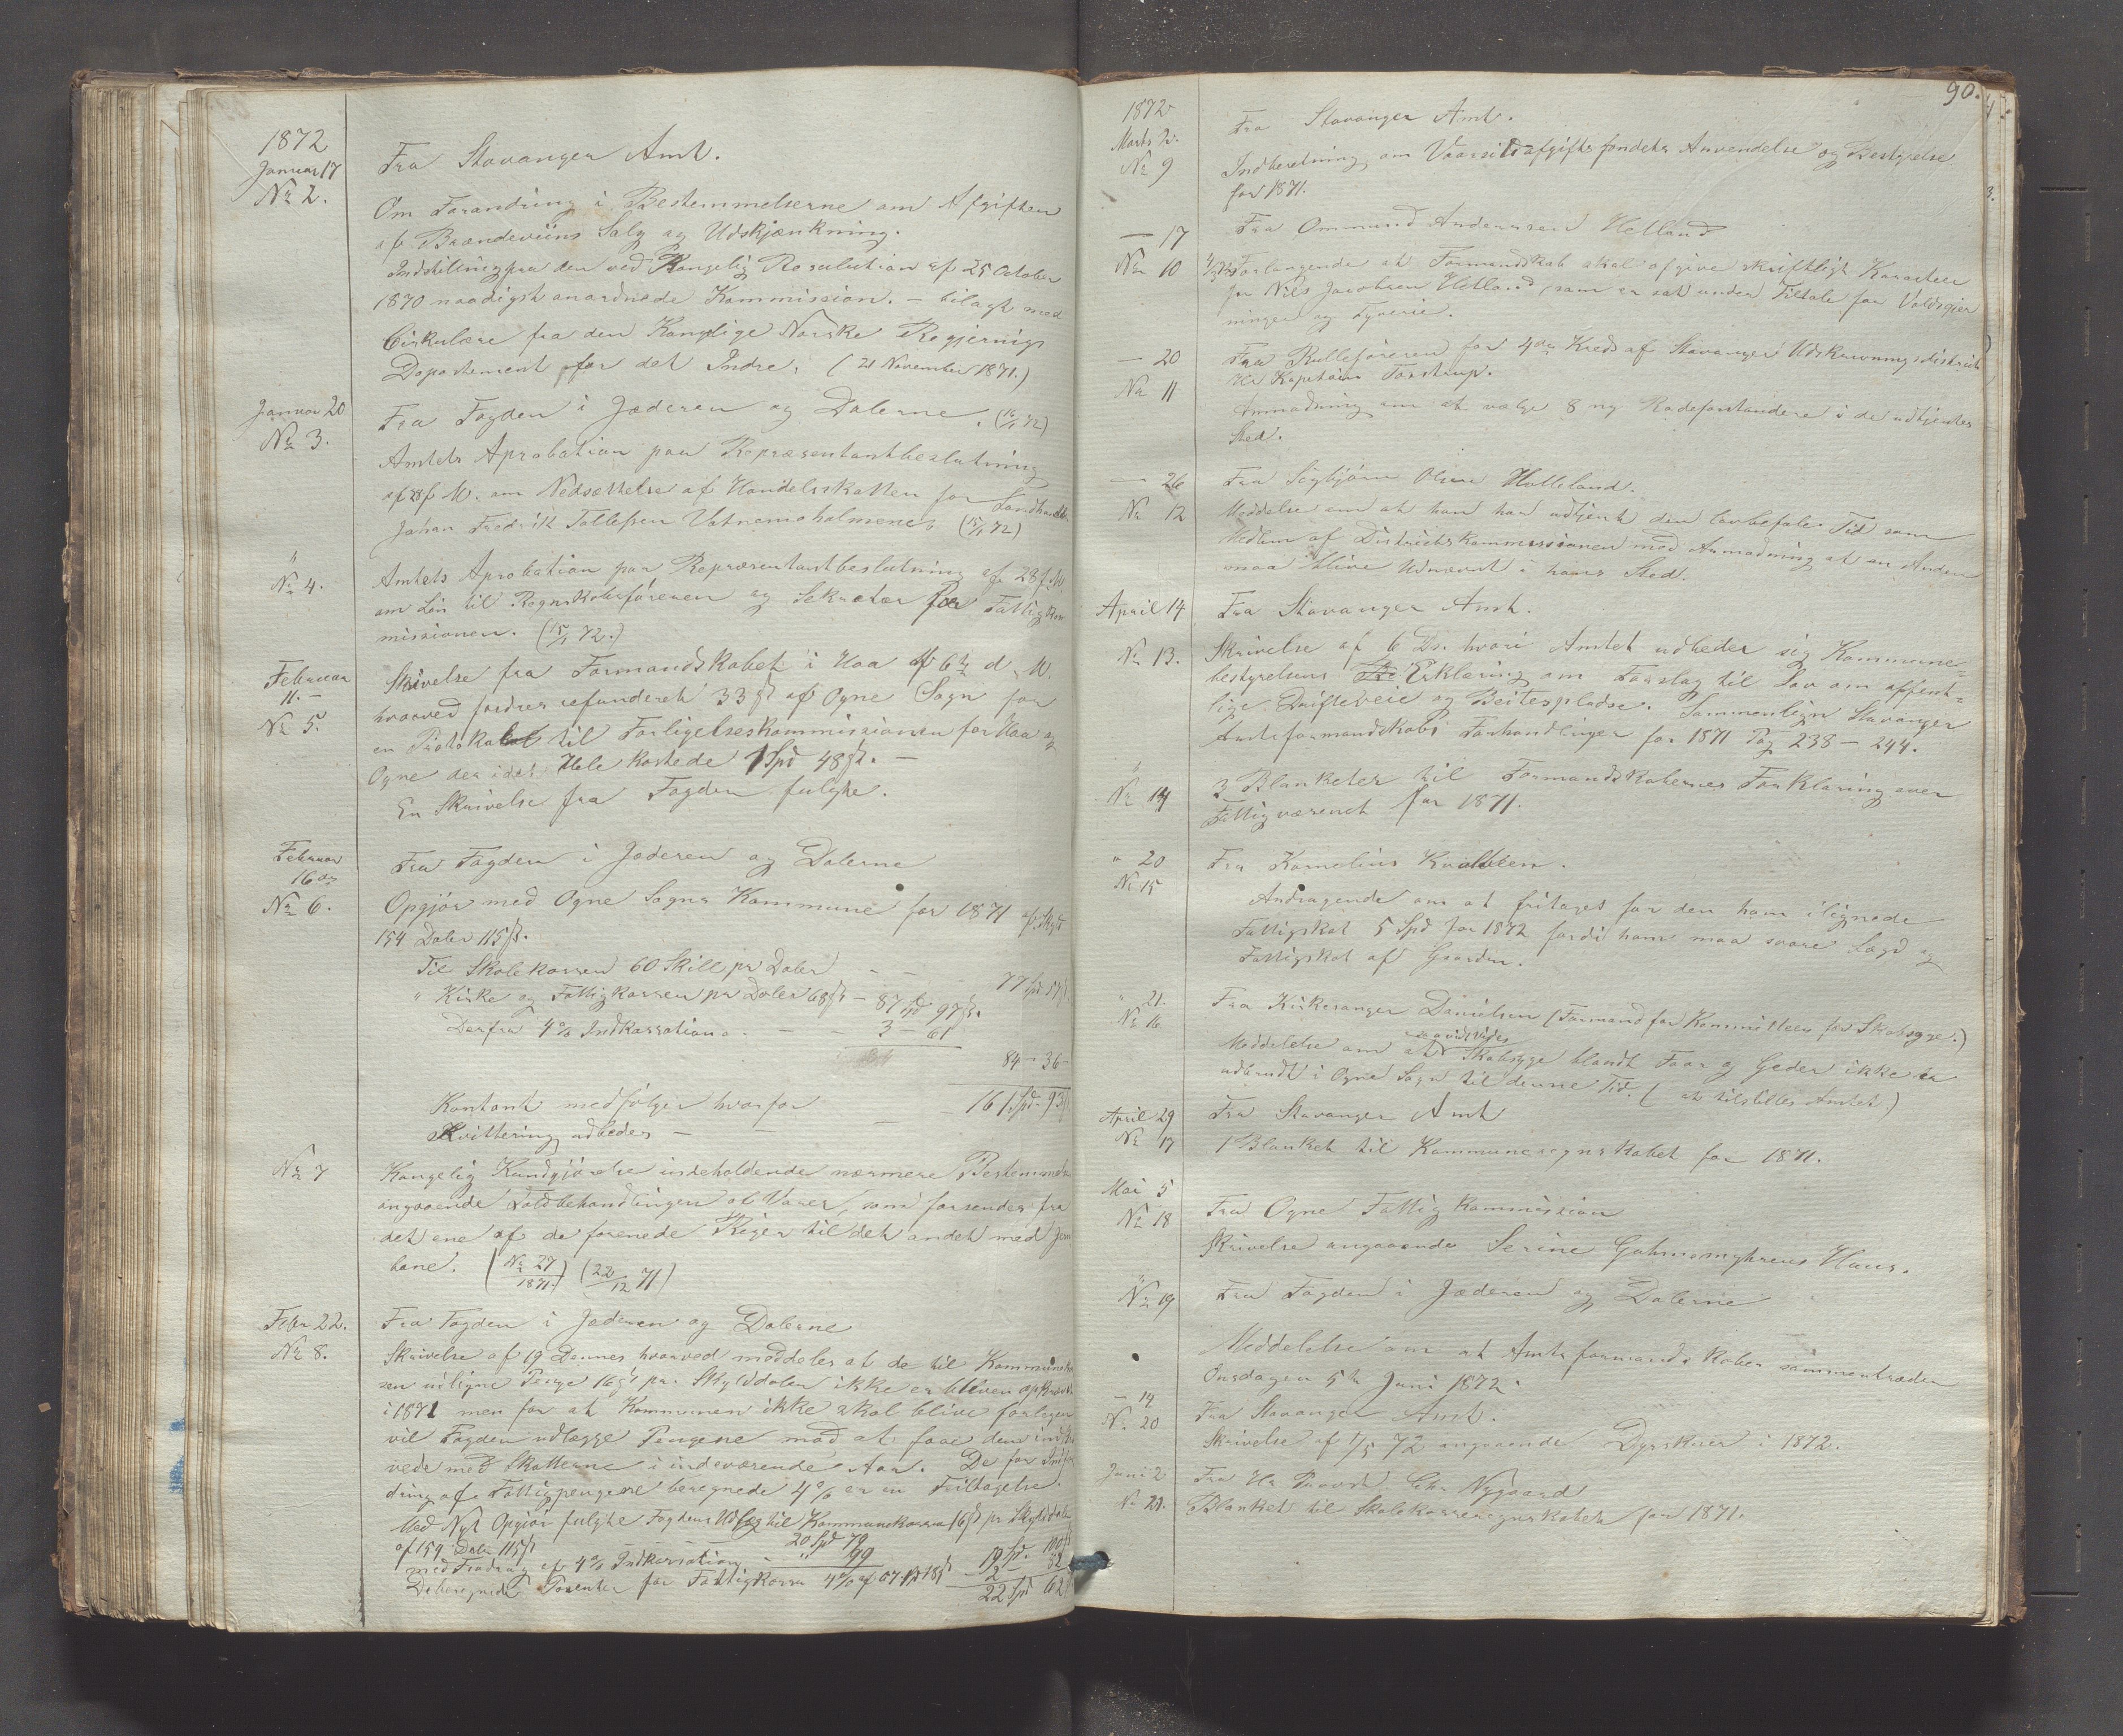 1872
Januar 17
No 2.
Fra Stavanger Amt.
Om Forandring i Bestemmelserne om Afgiften
af Brændeviins Salg og Udskjænkning.
Indstilling fra den ved Kongelig Resolution af 25 October
1870 naadigst anordnede Kommission. – bilagt med
Cirkulære fra den Kongelige Norske Regjernigs
Departement for det Indre. (21 November 1871.)
Januar 20
No 3.
Fra Fogden i Jæderen og Dalerne. (16/1 72)
Amtets Aprobation paa Repræsentantbeslutning
af 28 f M. om Nedsættelse af Handelsskatten for Landhandler
Johan Fredrik Tollefsen Vatnemoholmene. (15/1 72)
"
No 4.
Amtets Aprobation paa Repræsentantbeslutning af 28 f. M.
om Løn til Regnskabsføreren og Sekretær for Fattigkom
missionen. (15/1 72.)
Februar
11. –
No 5.
Skrivelse fra Formandskabet i Haa af 6te d. M.
hvorved fordres refunderet 33 ß af Ogne Sogn for
en Protokol til Forligelseskommissionen for Haa og
Ogne der i det Hele kostede 1 Spd 48 ß. –
En Skrivelse fra Fogden fulgte.
Februar
16de
No 6.
Fra Fogden i Jæderen og Dalerne
Opgjør med Ogne Sogns Kommune for 1871 af Skyld
154 Daler 115 ß.
Til Skolekassen 60 Skill pr Daler – – 77 Spd 57 ß
" Kirke og Fattigkassen pr Daler 68 ß – 87 Spd 97 ß.
Derfra 4 % Indkassation. – – 3 – 61
84 – 36 –
161 Spd. 93 ß.
Kontant medfølger hvorfor
Kvittering udbedes –
No 7
Kongelig Kundgjørelse indeholdende nærmere Bestemmelse
angaaende Toldbehandlingen af Varer, som forsendes fra
det ene af de forenede Riger til det andet med Jern
bane. (No 27 / 1871.) (22/12 71)
Febr 22.
No 8.
Fra Fogden i Jæderen og Dalerne
Skrivelse af 19 Dennes hvorved meddeles at de til Kommunekas
sen udligne Penge 16 ß pr. Skylddaler ikke er bleven opkrævet
i 1871 men for at Kommunen ikke skal blive forlegen
vil Fogden udlægge Pengene mod at faae dem
med Skatterne i indeværende Aar. De for
dring af Fattigpengene beregnede 4 % er en Feiltagelse.
Med Nyt Opgjør fulgte Fogdens Udlæg til Kommunekassen 16 ß pr Skylddaler
af 154 Daler 115 ß 20 Spd 79
med Fradrag af 4 % Indkassation – " 99 19 Sp. 100 ß
Deberegnede Procenter for Fattigkassen 4 % af 67 Sp 18 ß 2 – 82
22 Spd 62
90.
1872
Marts 2.
No 9
Fra Stavanger Amt.
Indberetning om Vaarsildafgiftsfondets Anvendelse og Bestyrelse
for 1871.
– 17
No 10
Fra Ommund Anderssen Hetland
Forlangende at Formandskab skal afgive skriftligt Karacteer
for Nils Jacobsen Hetland, som er sat under Tiltale for Voldsgjer
ninger og Tyverie.
– 20
No 11
Fra Rulleføreren for 4de Kreds af Stavanger Udskrivningsdistrict
Hr Kaptain Tostrup.
Anmodning om at vælge 8 ny Rodeforstandere i de udtjentes
Sted.
– 26
No 12
Fra Sigbjørn Olsen Hølleland.
Meddelse om at han har udtjent den lovbefale Tid som
Medlem af Districtskommissionen med Anmodning at en Anden
maa blive Udnævnt i hans Sted.
April 14
No 13.
Fra Stavanger Amt.
Skrivelse af 6 Ds. hvori Amtet udbeder sig Kommune=
bestyrelsens Erklæring om Forslag til Lov om offent=
lige Drifteveie og Beitespladse. Sammenlign Stavanger
Amtsformandskabs Forhandlinger for 1871 Pag 238 – 244.
"
No 14
3 Blanketer til Formandskabernes Forklaring over
Fattigvæsenet for 1871.
" 20
No 15
Fra Kornelius Kvalbien.
Andragende om at fritages for den ham ilignede
Fattigskat 5 Spd for 1872 fordi ham maa svare Lægd og
Fattigskat af Gaarden.
" 21.
No 16
Fra Kirkesanger Danielsen (Formand for Kommitteen for Skabsyge.)
Meddelelse om at saavidt vides Skabsyge blandt Faar og Geder ikke er
udbrudt i Ogne Sogn til denne Tid. (at tilstilles Amtet.)
April 29
No 17
Fra Stavanger Amt
1 Blanket til Kommuneregnskabet for 1871.
Mai 5
No 18
Fra Ogne Fattigkommission
Skrivelse angaaende Serine Gahmomyhrens Huus.
"
No 19
Fra Fogden i Jæderen og Dalerne
Meddelelse om at Amtsformandskabet sammentræder
Onsdagen 5te Juni 1872.
– 14
No 20
Fra Stavanger Amt.
Skrivelse af 1/5 72 angaaende Dyrskuer i 1872.
Juni 2
No 21.
Fra Hr Provst Chr Nygaard
Blanket til Skolekasseregnskabet for 1871.